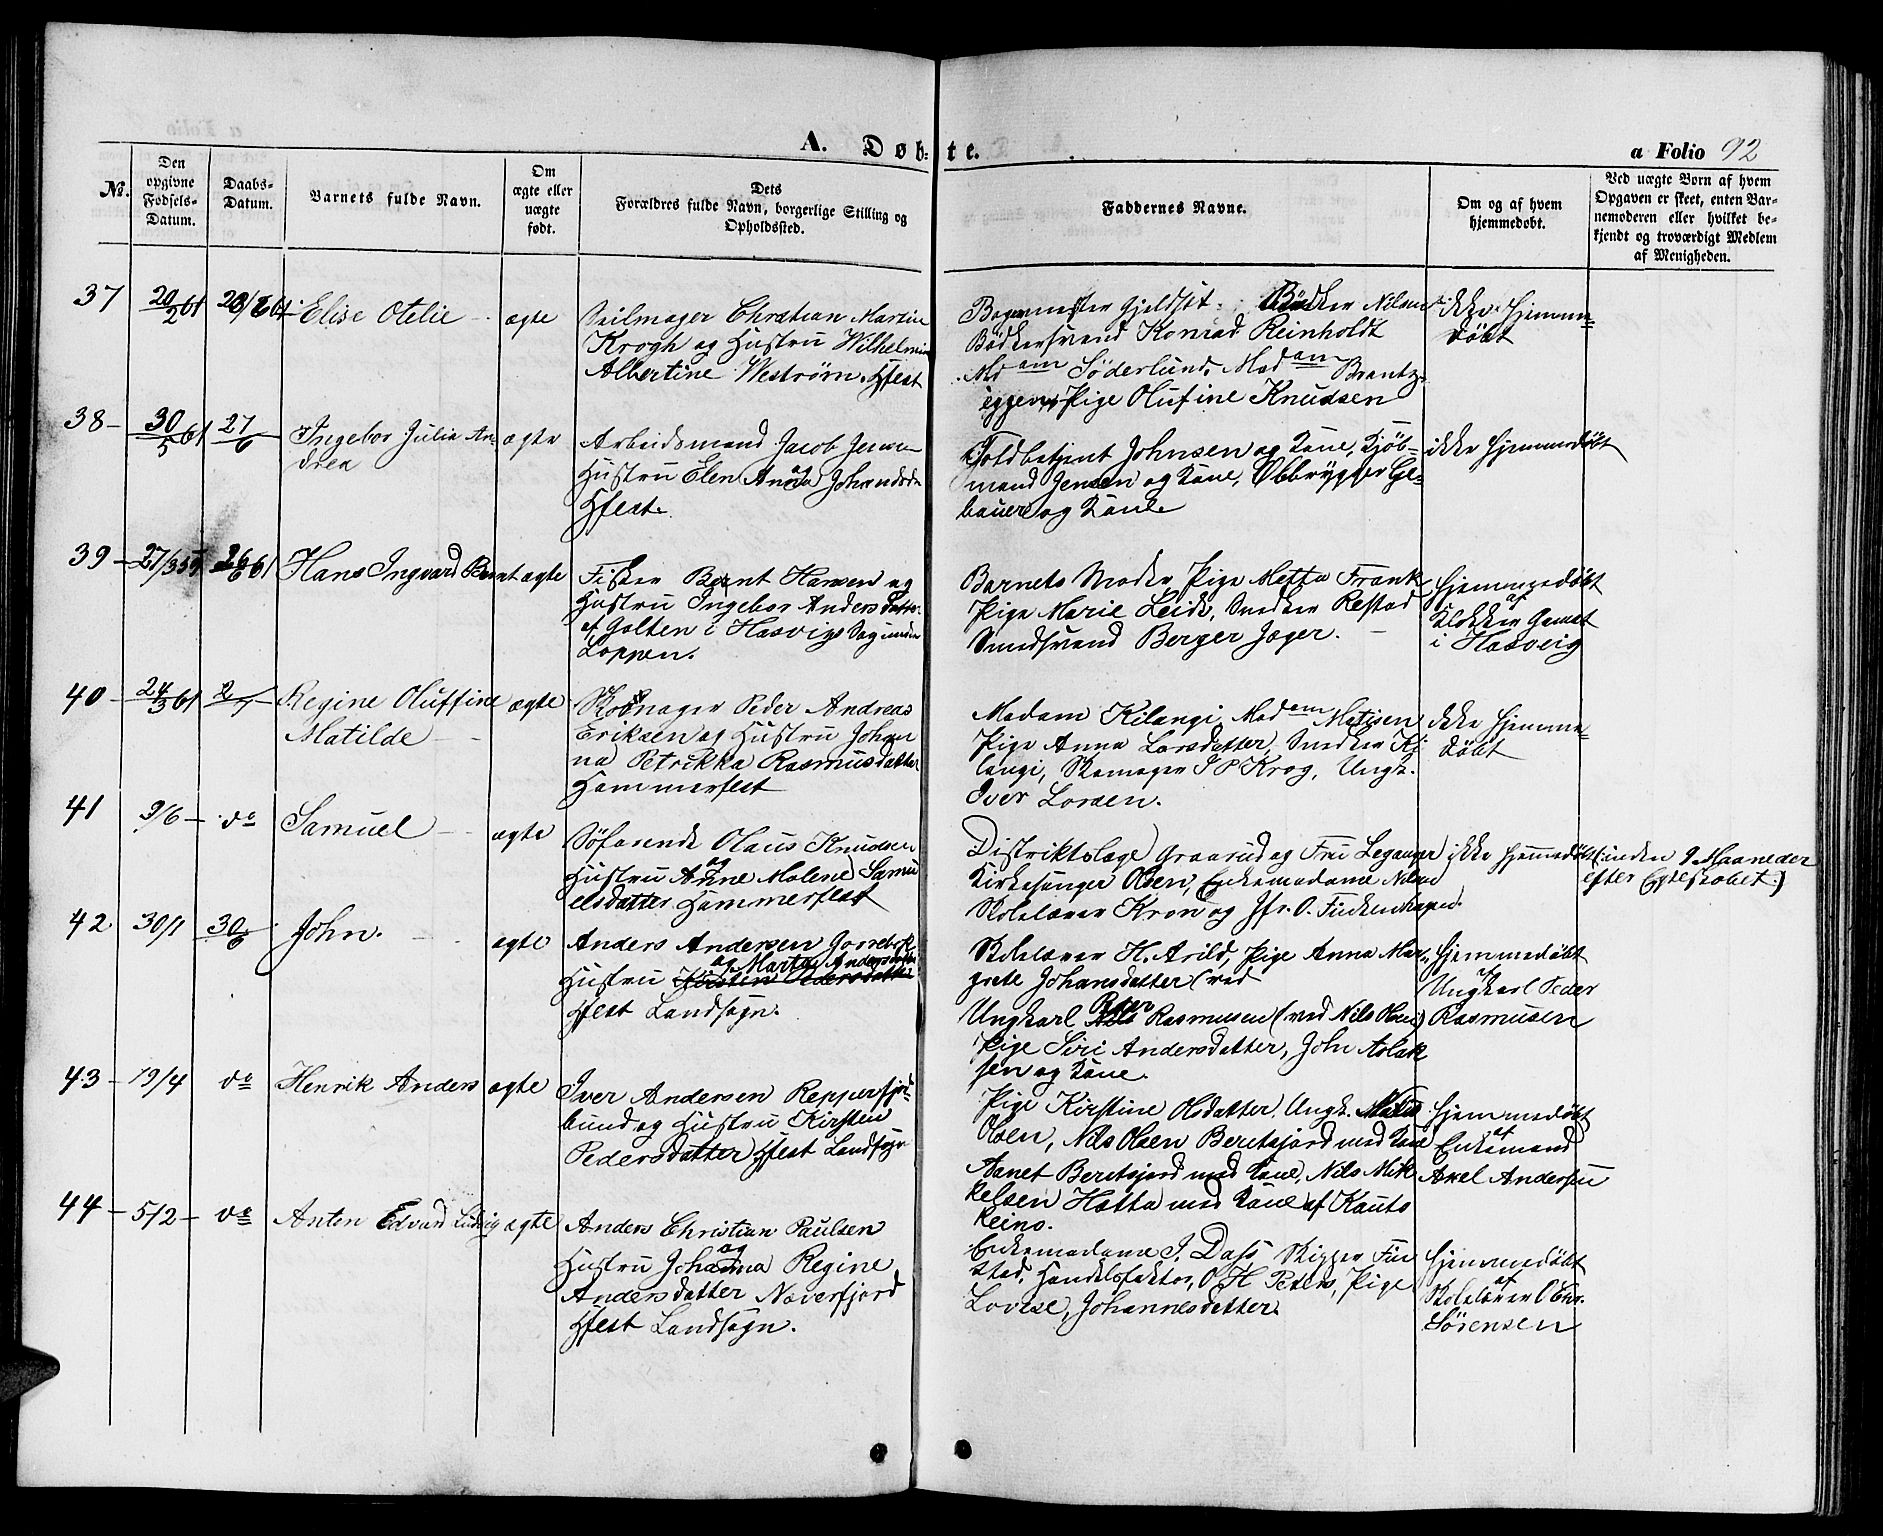 A. Døb-
te.
a Folio 92
No.
Den opgivne Fødsels-Datum.
Daabs-Datum.
Barnets fulde Navn.
Om ægte eller uægte født.
Dets Forældres fulde Navn, borgerlige Stilling og Opholdssted.
Faddernes Navne.
Om og af hvem hjemmedøbt.
Ved uægte Born af hvem Opgaven er skeet, enten Bar-nemoderen eller hvilket be-kjendt og troværdigt Medlem af Menigheden.
37
20/2 61
Elise Otelie
ægte
Seilmager Christian Martin
Krogh og Hustru Wilhelmin
Albertine Westrøm. Hfest
Bödker Nilsen
Bödkersvend Konrad Reinholdt
Mdam Söderlund, Madam
Pige Olufine Knudsen
ikke hjemme=
döbt
38 -
30/5 61
27/6
Ingebor Julia An-
drea
ægte
Arbeidsmand Jacob Jensen
og
Hustru Elen Anna
Hfest.
Toldbetjent Johnsen og Kone, Kjöb-
mand Jensen og Kone, Ölbrygger Ge-
bauer og Kone
ikke hjemmedöbt
39 -
26/6 61
Hans Ingvard Bernt
ægte
Fisker Bernt Hansen og
Hustru Ingebor Andersdatter
af Galten i Hasvigs Sogn
Loppen.
Barnets Moder, Pige Metta Frank
Pige Marie Leide, Snedker Restad
Smedsvend Berger Jæger.
hjemmedöbt
af
Klokker
i Hasveig
40 -
24/3 61
2/7
Regine Oluffine
Matilde
ægte
Skomager Peder Andreas
Eriksen og Hustru Johan
na Petrikka Rasmusdatter
Hammerfest
Madam Kilangi, Madam Matisen
Pige Anna Larsdatter, Snedker Ki
langi, Skomager I P Krog, Ungk.
Iver Larsen.
ikke hjemme=
döbt
41
9/6 -
do
Samuel
ægte
Söfarende Olaus Knudsen
og
Hustru Anne Malene Samu
elsdatter Hammerfest
Distriktslæge Graarud og Fru Leganger
Kirkesanger Olsen, Enkemadame Nilsen
Skolelærer Kron og Jfr. O. Finckenhagen.
ikke hjemmedöbt
(inden 9 Maaneder
efter Egteskabet.)
42
30/1
30/6
John.
ægte
Anders Andersen
og Marta Andersdatter
Hustru Kirsten Pedersdatter
Hfest Landsogn.
Skolelærer H. Arild, Pige Anna Mar-
grete Johansdatter (ved
Peder
Ungkarl Nils Rasmusen (ved Nils
Pige Siri Andersdatter, John Aslak
sen og Kone.
hjemmedöbt
af
Ungkarl Peder
Rasmusen
43 -
19/4
do
Henrik Anders
ægte
Iver Andersen Repperfjord-
bund og Hustru Kirsten
Pedersdatter Hfest Landsogn
Pige Kirstine Olsdatter, Ungk.
Olsen, Nils Olsen Beretsjord med Kone
Beretsjord med Kone, Nils Mik
kelsen Hætta med Kone af Kauto
keino.
hjemmedöbt
af
Enkemand
Axel Andersen
44 -
5/2 -
do
Anton Edvard Ludvig
ægte
Anders Christian Paulsen
og
Hustru Johanna Regine
Andersdatter Naverfjord
Hfest Landsogn.
Enkemadame J. Dass Skipper Fin
stad, Handelsfaktor, O H. Peters, Pige
Lovise, Johannesdatter.
hjemmedöbt
af
Skolelærer O Chr.
Sörensen